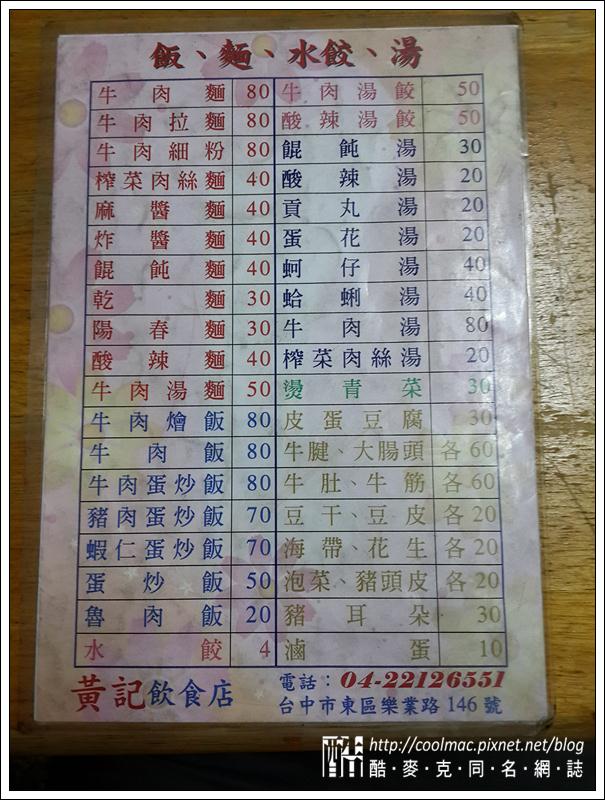 飯、麵、水餃、湯
牛肉麵 80 牛肉湯餃 50
牛肉拉麵 80 酸辣湯餃 50
牛肉細粉 80 餛飩湯 30
榨菜肉絲麵 40 酸辣湯 20
麻醬麵 40 貢丸湯 20
炸醬麵 40 蛋花湯 20
餛飩麵 40 蚵仔湯 40
乾麵 30 蛤蜊湯 40
陽春麵 30 牛肉湯 80
酸辣麵 40 榨菜肉絲湯 20
牛肉湯麵 50 燙青菜 30
牛肉燴飯 80 皮蛋豆腐 30
牛肉飯 80 牛腱、大腸頭 各60
牛肉蛋炒飯 80 牛肚、牛筋 各60
豬肉蛋炒飯 70 豆干、豆皮 各20
蝦仁蛋炒飯 70 海帶、花生 各20
蛋炒飯 50 泡菜、豬頭皮 各20
魯肉飯 20 豬耳朵 30
水餃 4 滷蛋 10
黃記飲食店 電話：04-22126551
台中市東區樂業路146號
http://coolmac.pixnet.net/blog
酷‧麥‧克‧同‧名‧網‧誌